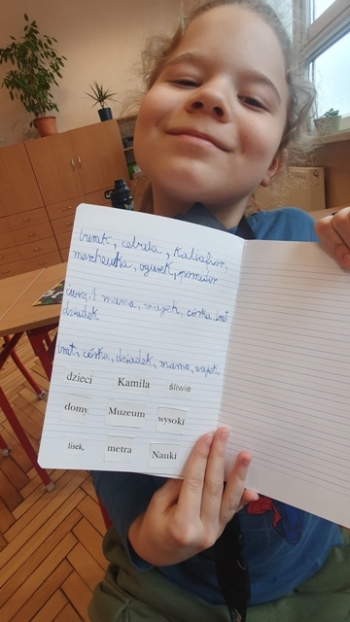 burak, cebula, kalafior,
marchewka, ogurek, pomidor
mama, wujek, córka, brat
dziadek.
brat, córka, dziadek, mama, wujek.
dzieci Kamila śliwie
domy Muzeum wysoki
lisek, metra Nauki